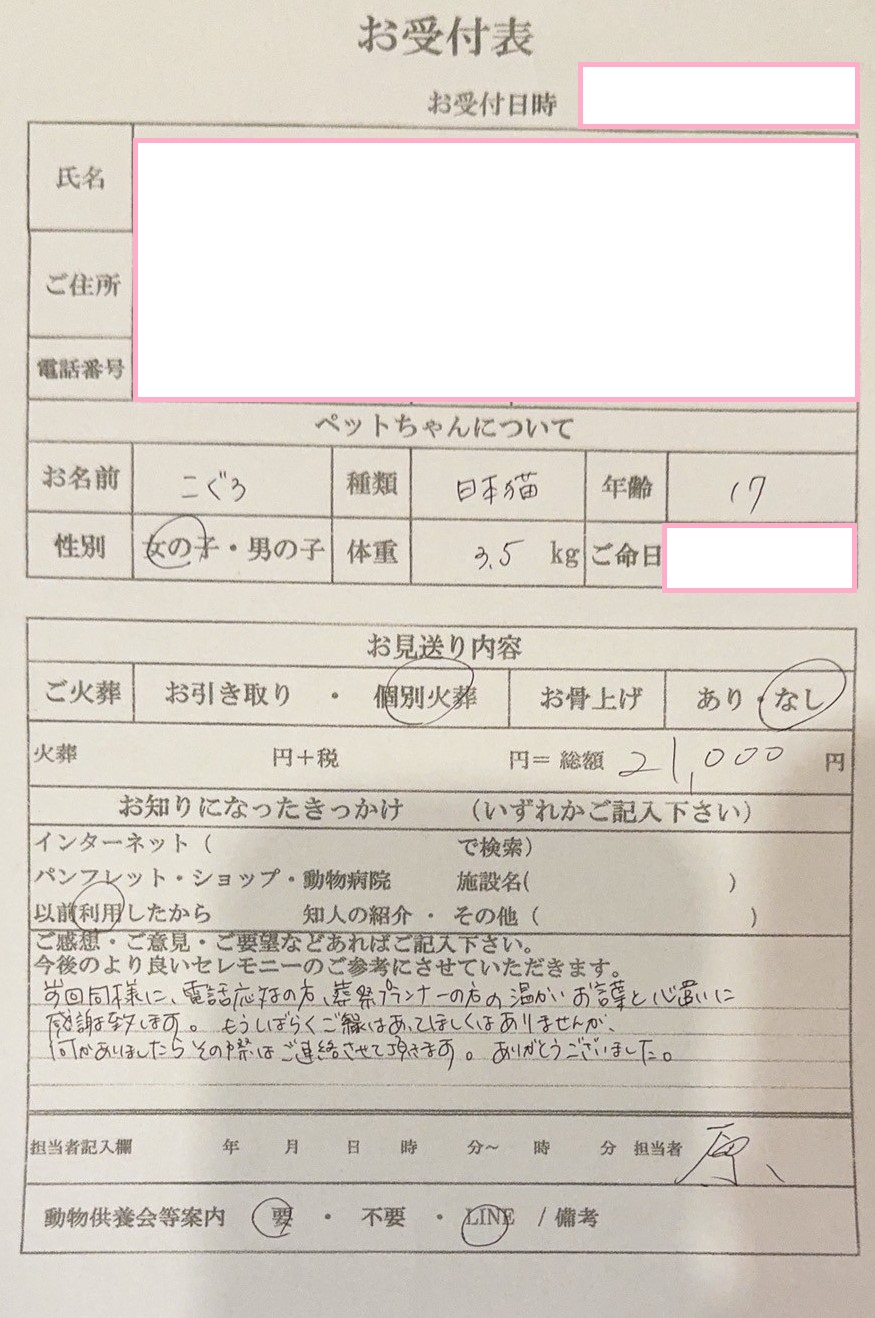 お受付表
お受付日時
氏名
ご住所
電話番号
ペットちゃんについて
お名前 こぐろ 種類 日本猫 年齢 17
性別 女の子・男の子 体重 3.5 kg ご命日
お見送り内容
ご火葬 お引き取り ・ 個別火葬 お骨上げ あり・なし
火葬 円＋税 円＝総額 21,000 円
お知りになったきっかけ （いずれかご記入下さい）
インターネット（ で検索）
パンフレット・ショップ・動物病院 施設名( )
以前利用したから 知人の紹介 ・ その他（ ）
ご感想・ご意見・ご要望などあればご記入下さい。
今後のより良いセレモニーのご参考にさせていただきます。
前回同様に、電話応対の方、葬祭プランナーの方の温かいお言葉と心遣いに
感謝致します。 もうしばらくご縁はあってほしくはありませんが、
何かありましたらその際はご連絡させて頂きます。ありがとうございました。
担当者記入欄 年 月 日 時 分～ 時 分 担当者 原
動物供養会等案内 要 ・ 不要 ・ LINE / 備考